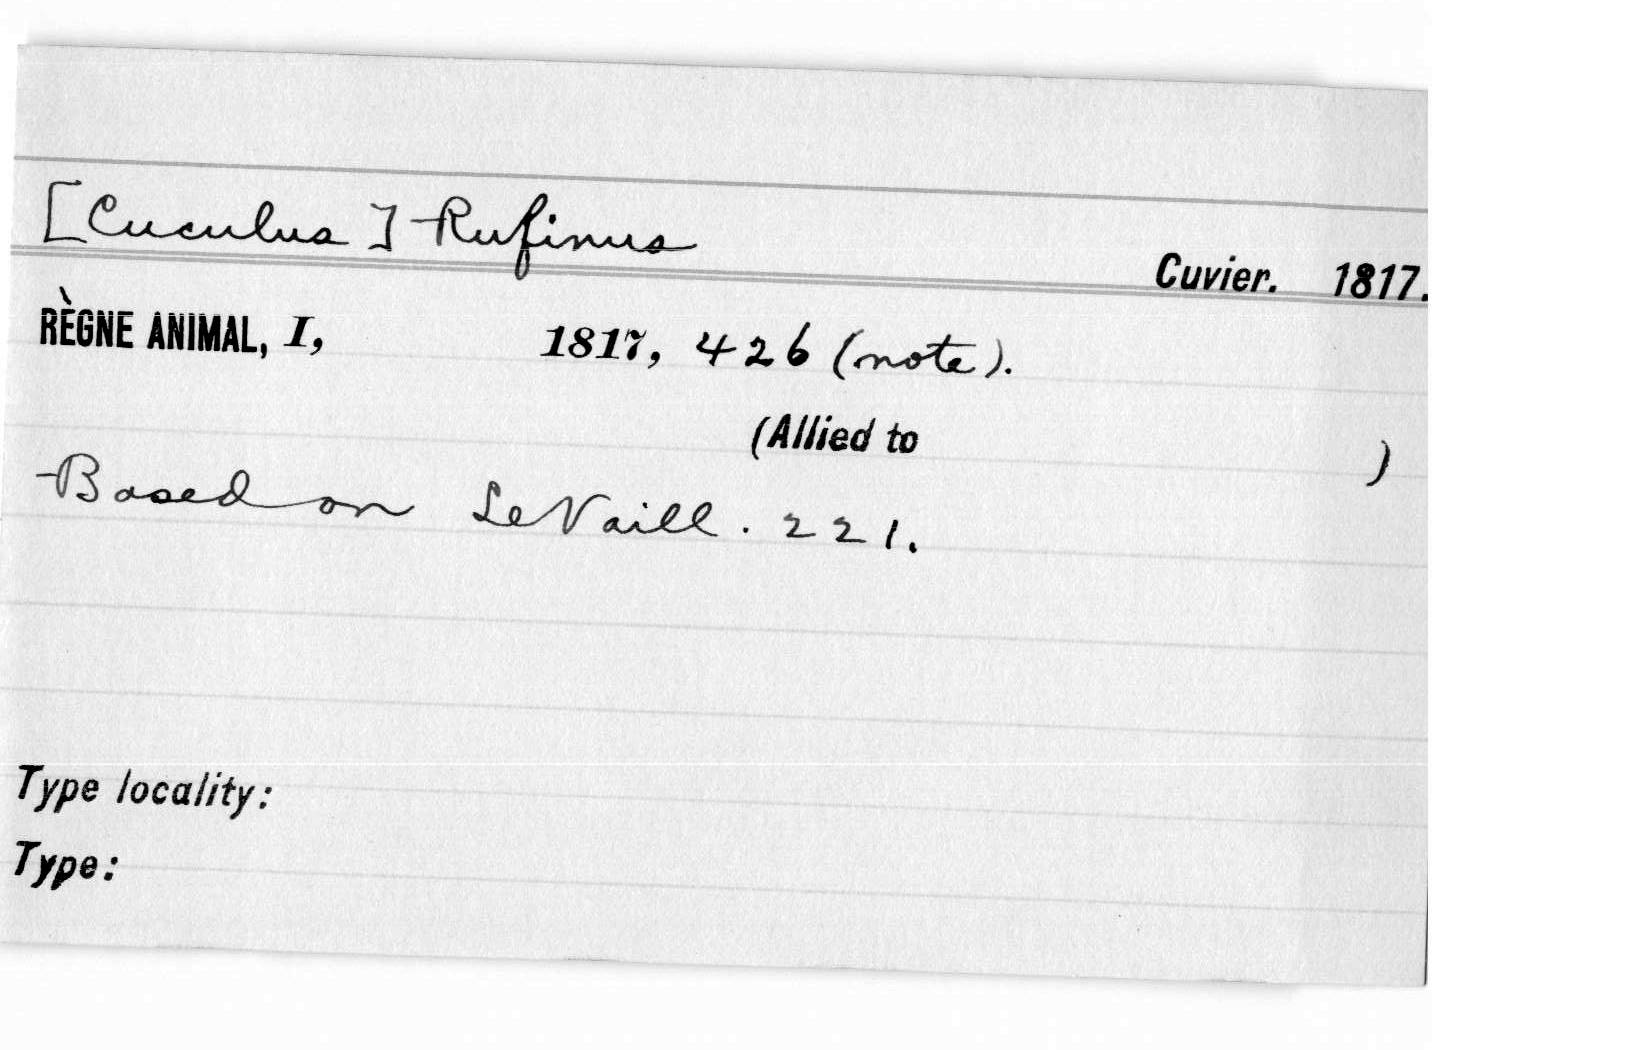 [Cuculus] Rufinus
Cuvier. 1817.
RÈGNE ANIMAL, I, 1817, 426 (note).
(Allied to )
Based on LeVaill. 221.
Type locality:
Type: